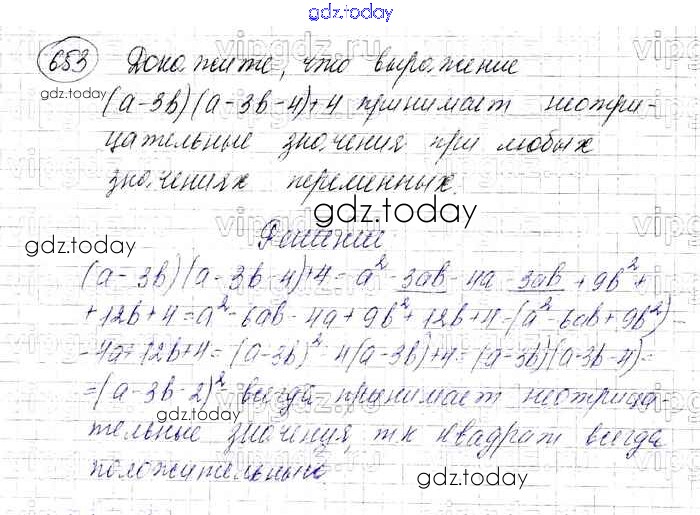 gdz.today
653 Докажите, что выражение
gdz.today
(a-3b)(a-3b-4)+4 принимает неотри-
цательные значения при любых
значениях переменных.
gdz.today
gdz.today
Решение
(a-3b)(a-3b-4)+4=a²-3ab-4a-3ab+9b²+
+12b+4=a²-6ab-4a+9b²+12b+4-(a²-6ab+9b²)-
-4a+12b+4=(a-3b)²-4(a-3b)+4=(a-3b)(a-3b-4)=
=(a-3b-2)² всегда принимает неотрица-
gdz.today
тельные значения, т.к квадрат всегда
положительный.
gdz.today